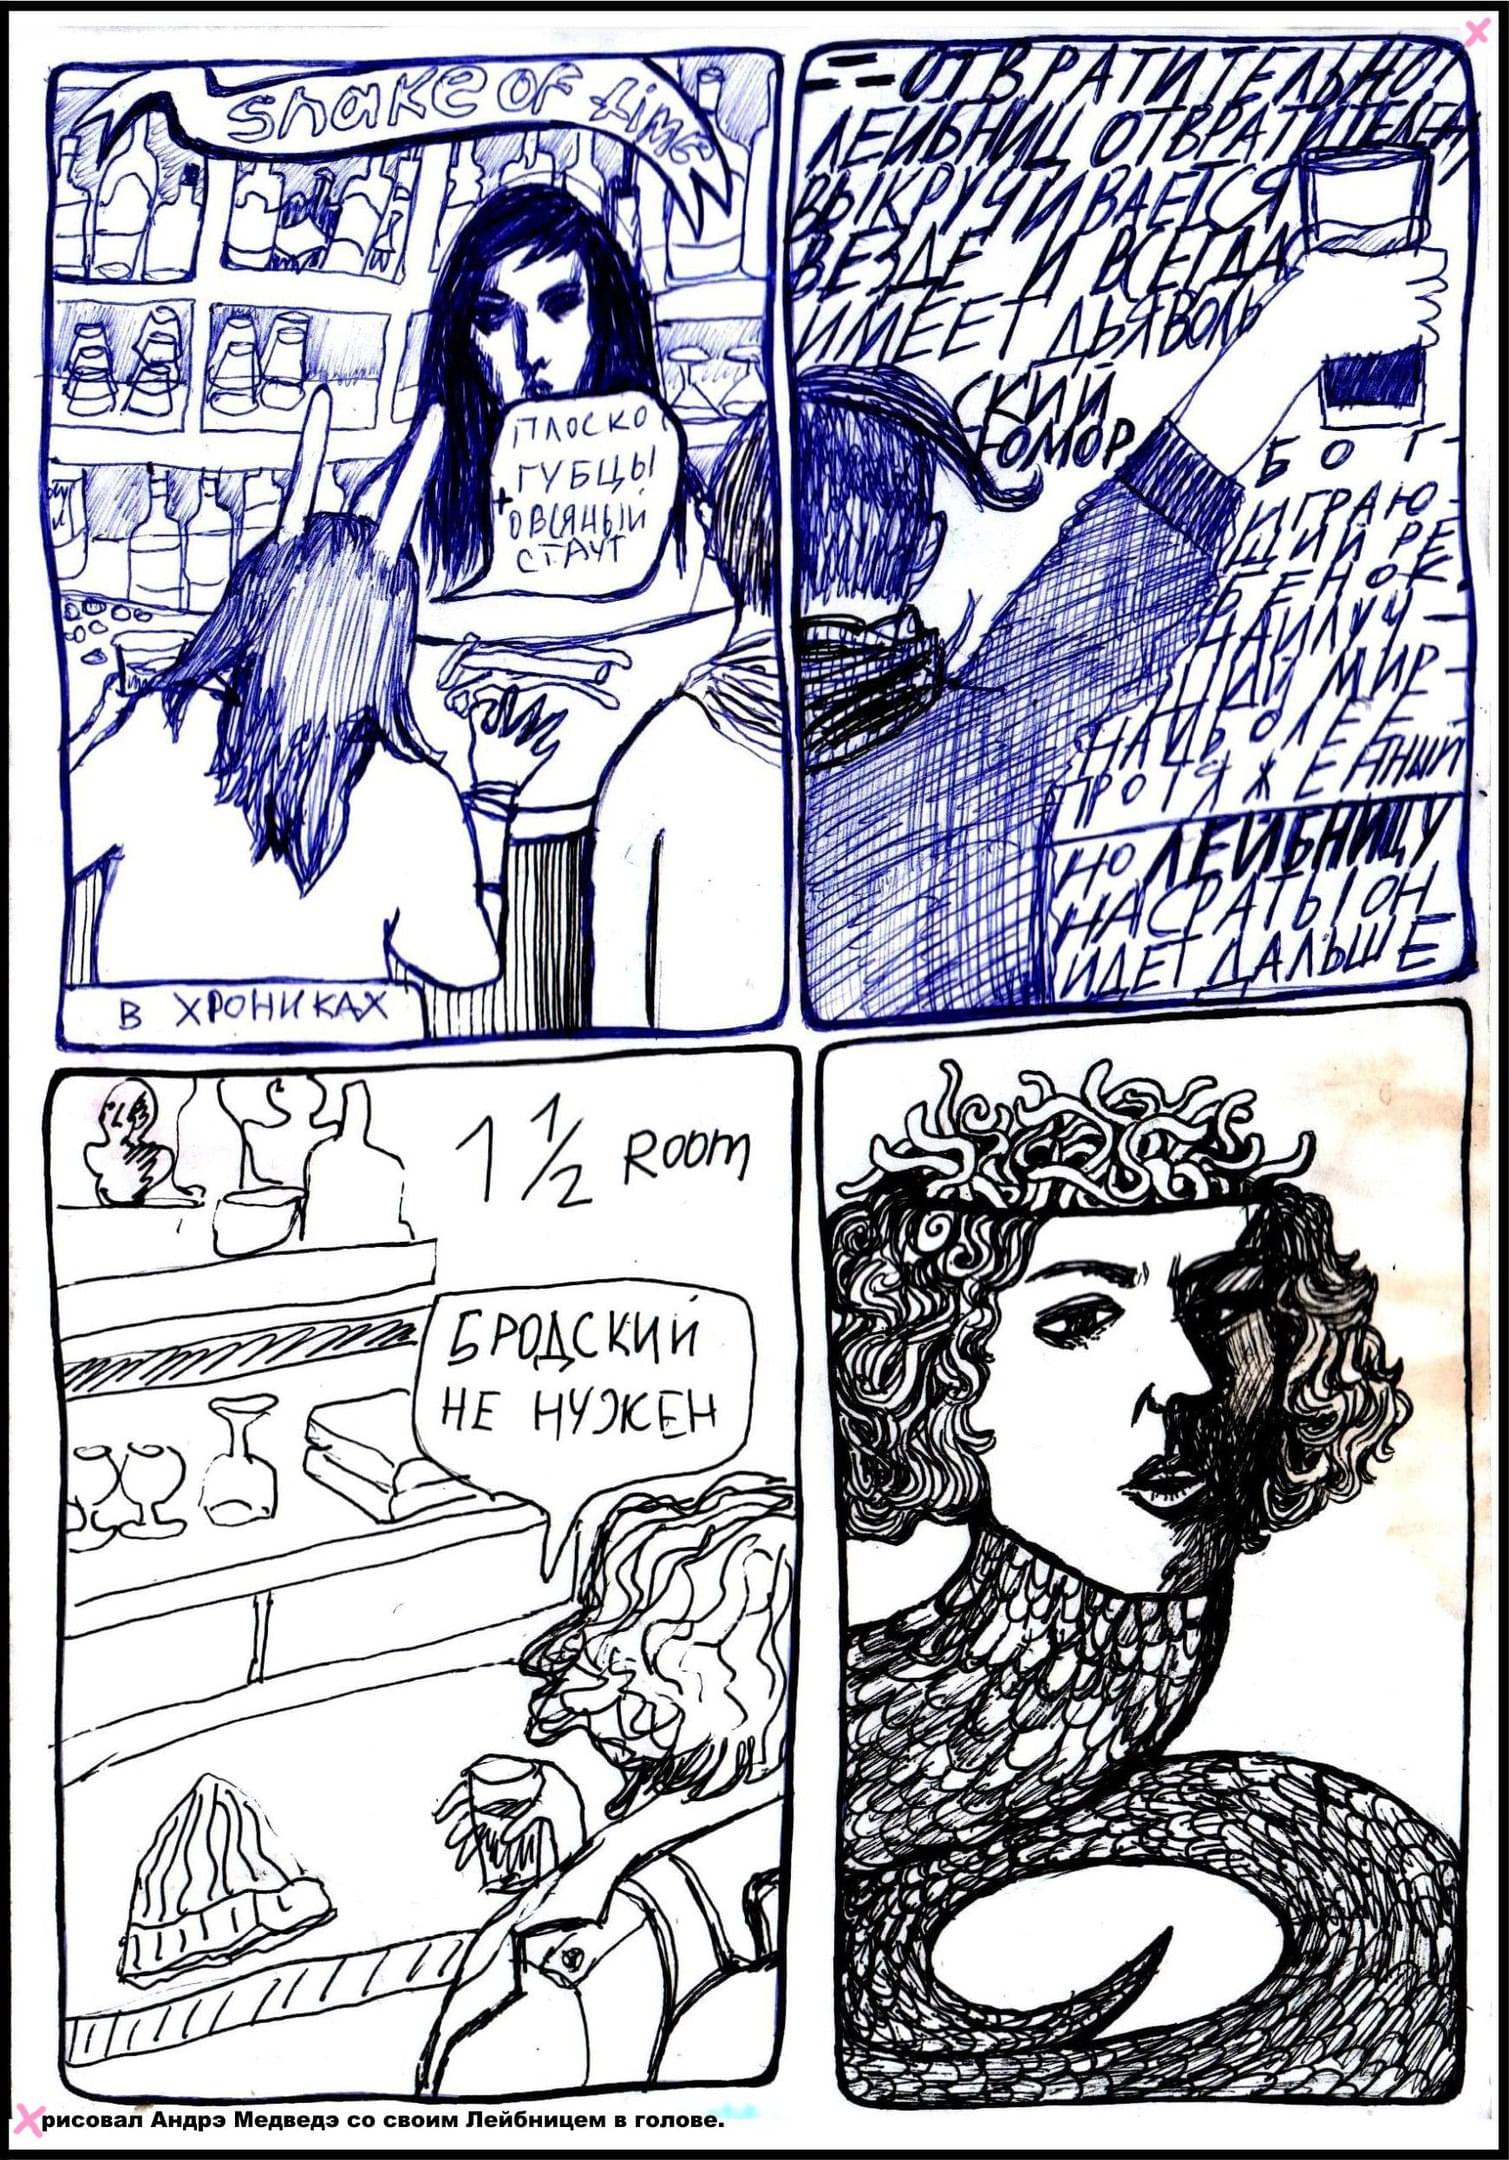 snake of time
ПЛОСКО
ГУБЦЫ
+
ОВСЯНЫЙ
СТАУТ
В ХРОНИКАХ
ОТВРАТИТЕЛЬНО!
ЛЕЙБНИЦ ОТВРАТИТЕЛЕН,
ВЫКРУЧИВАЕТСЯ
ВЕЗДЕ И ВСЕГДА
ИМЕЕТ ДЬЯВОЛЬ
СКИЙ
ЮМОР
БОГ-
ИГРАЮ-
ЩИЙ РЕ
БЕНОК.
НАИЛУЧ-
ШИЙ МИР-
НАИБОЛЕЕ
ПРОТЯЖЕННЫЙ
НО ЛЕЙБНИЦУ
НАСРАТЬ! ОН
ИДЕТ ДАЛЬШЕ
1 1/2 ROOM
БРОДСКИЙ
НЕ НУЖЕН
рисовал Андрэ Медведэ со своим Лейбницем в голове.